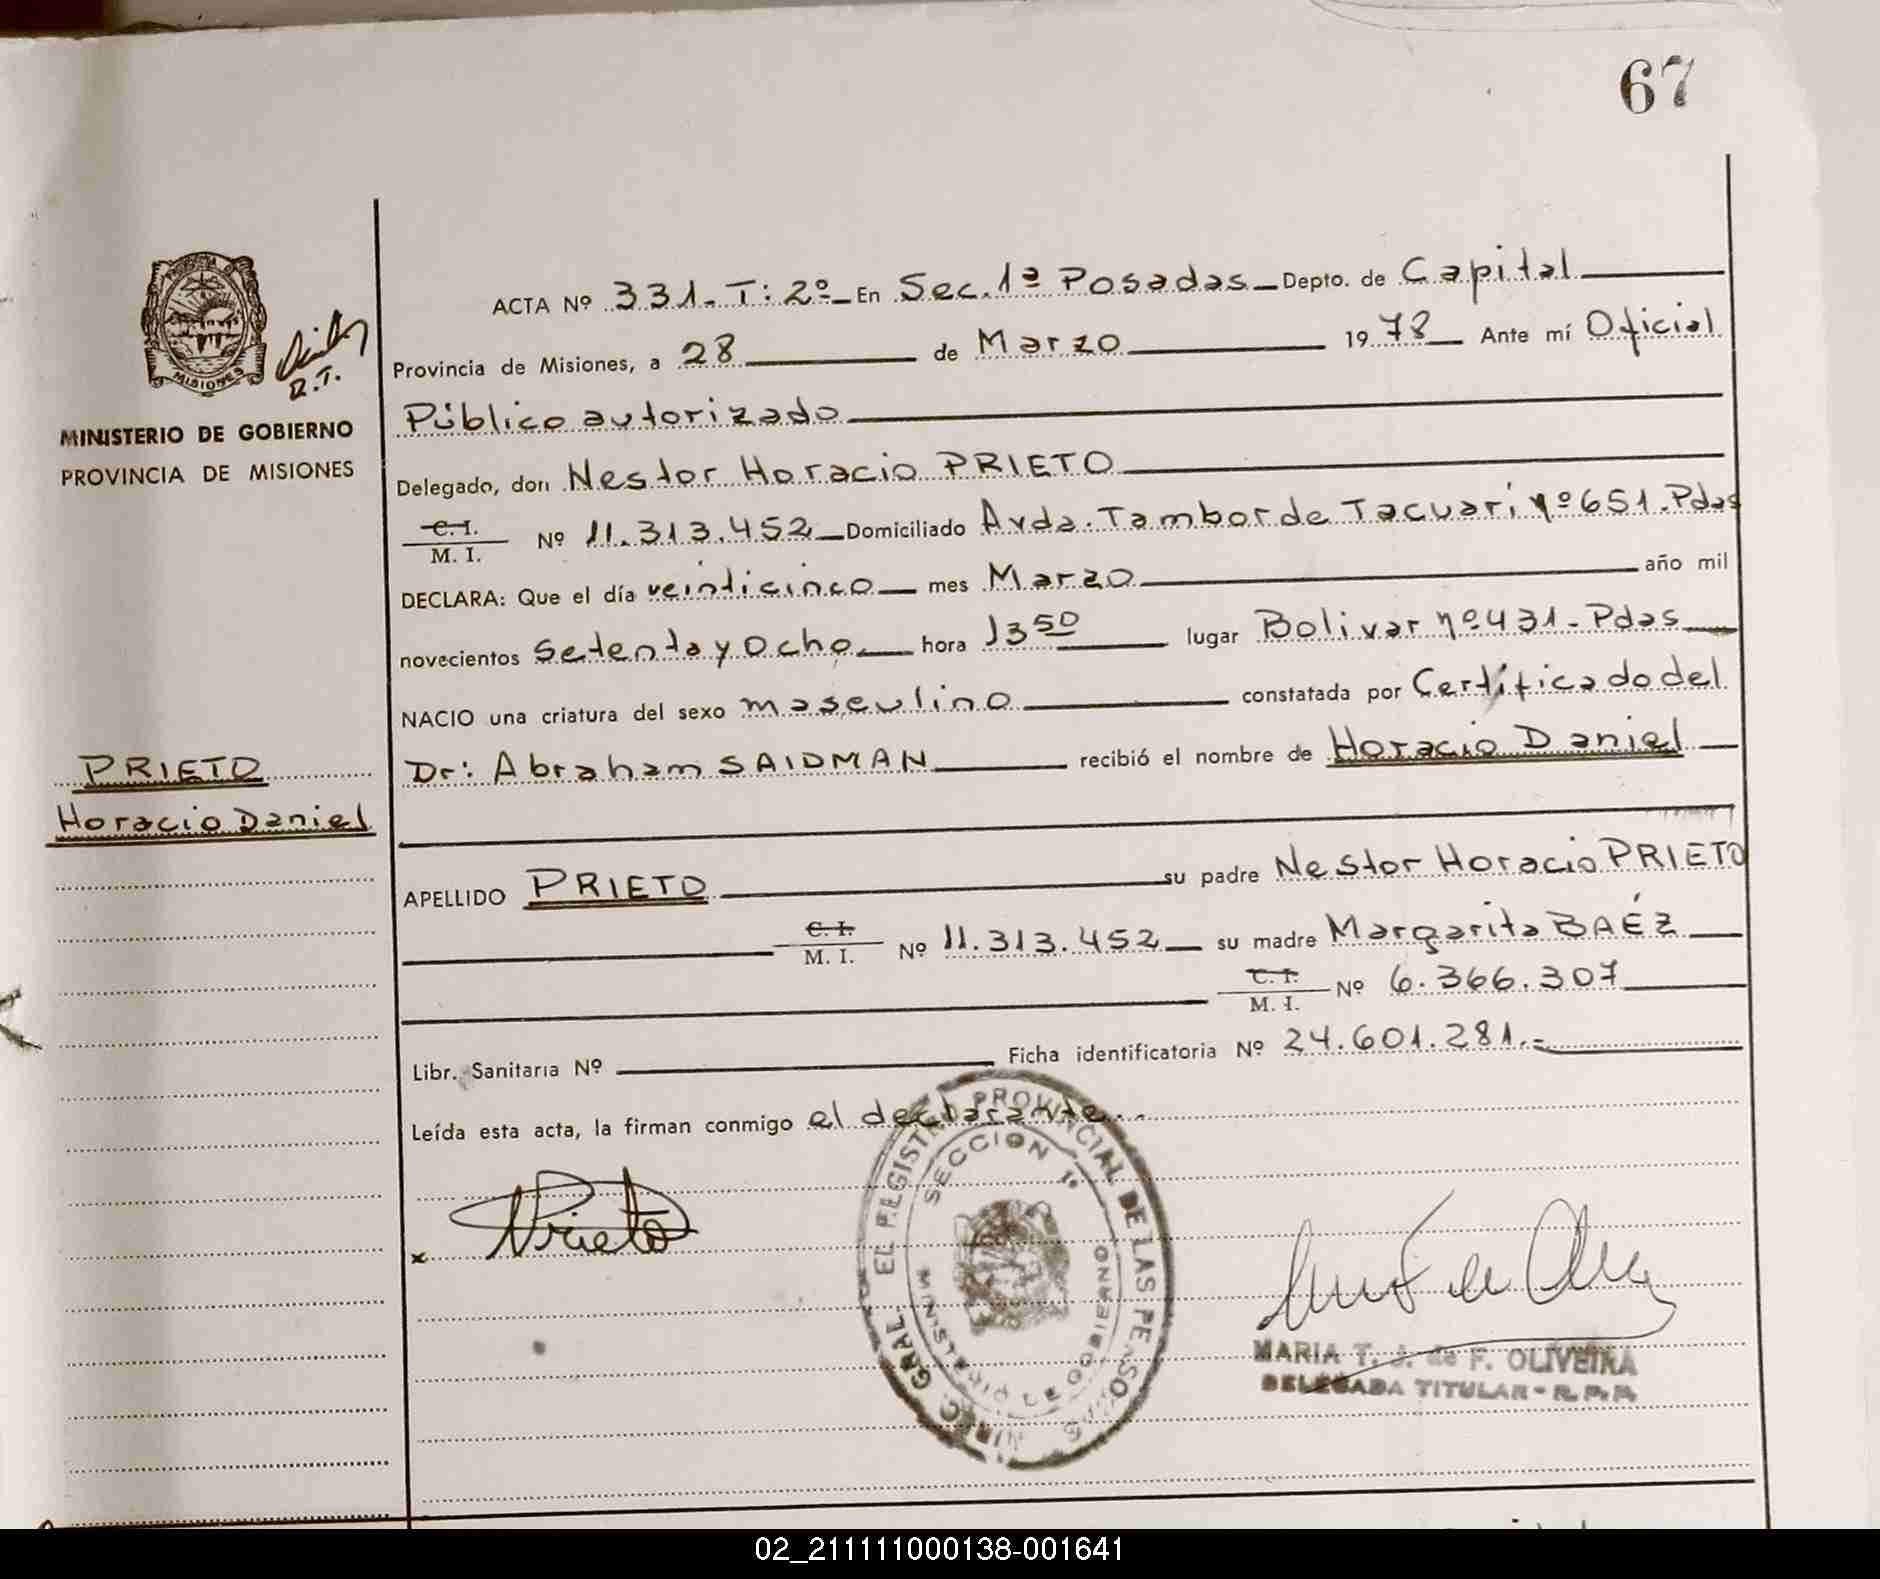 67
ACTA Nº 331. T: 2º En Sec. 1ª Posadas Depto. de Capital
Provincia de Misiones, a 28 de Marzo 1978 Ante mí Oficial
Público autorizado
Delegado, don Nestor Horacio PRIETO
C. I.
M. I. Nº 11.313.452 Domiciliado Avda. Tambor de Tacuarí nº 651. Pdas
DECLARA: Que el día veinticinco mes Marzo año mil
novecientos Setenta y Ocho hora 13 50 lugar Bolivar nº 431 - Pdas
NACIO una criatura del sexo masculino constatada por Certificado del
Dr: Abraham SAIDMAN recibió el nombre de Horacio Daniel
APELLIDO PRIETO su padre Nestor Horacio PRIETO
C. I.
M. I. Nº 11.313.452 su madre Margarita BAÉZ
C. I.
M. I. Nº 6.366.307
Libr. Sanitaria Nº Ficha identificatoria Nº 24.601.281.-
Leída esta acta, la firman conmigo el declarante.
x Prieto
MARIA T. J. de F. OLIVEIRA
DELEGADA TITULAR - R. P. P.
EL REGISTRO PROVINCIAL DE LAS PERSONAS
SECCION 1ª
MISIONES
MINISTERIO DE GOBIERNO
PROVINCIA DE MISIONES
PRIETO
Horacio Daniel
02_211111000138-001641